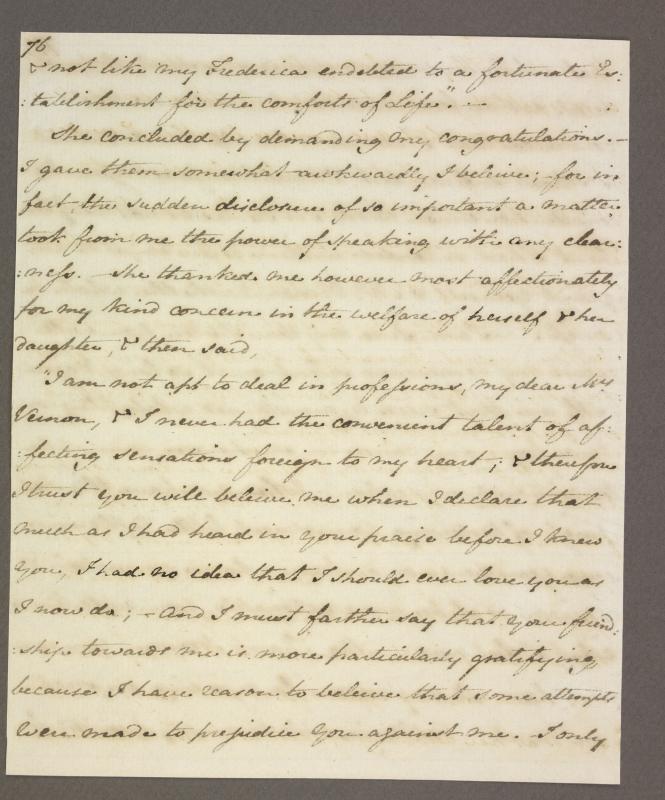 76
& not like my Frederica endebted to a fortunate Es:
:tablishment for the comforts of Life". —
She concluded by demanding my congratulations. —
I gave them somewhat awkwardly I beleive; - for in
fact, the sudden disclosure of so important a matter
took from me the power of speaking with any clear:
:ness. - She thanked me however most affectionately
for my kind concern in the welfare of herself & her
daughter, & then said,
"I am not apt to deal in professions, my dear Mrs
Vernon, & I never had the convenient talent of af:
:fecting sensations foreign to my heart; & therefore
I trust you will beleive me when I declare that
much as I had heard in your praise before I knew
you, I had no idea that I should ever love you as
I now do; - and I must farther say that your friend:
:ship towards me is more particularly gratifying,
because I have reason to beleive that some attempts
were made to prejudice you against me. - I only